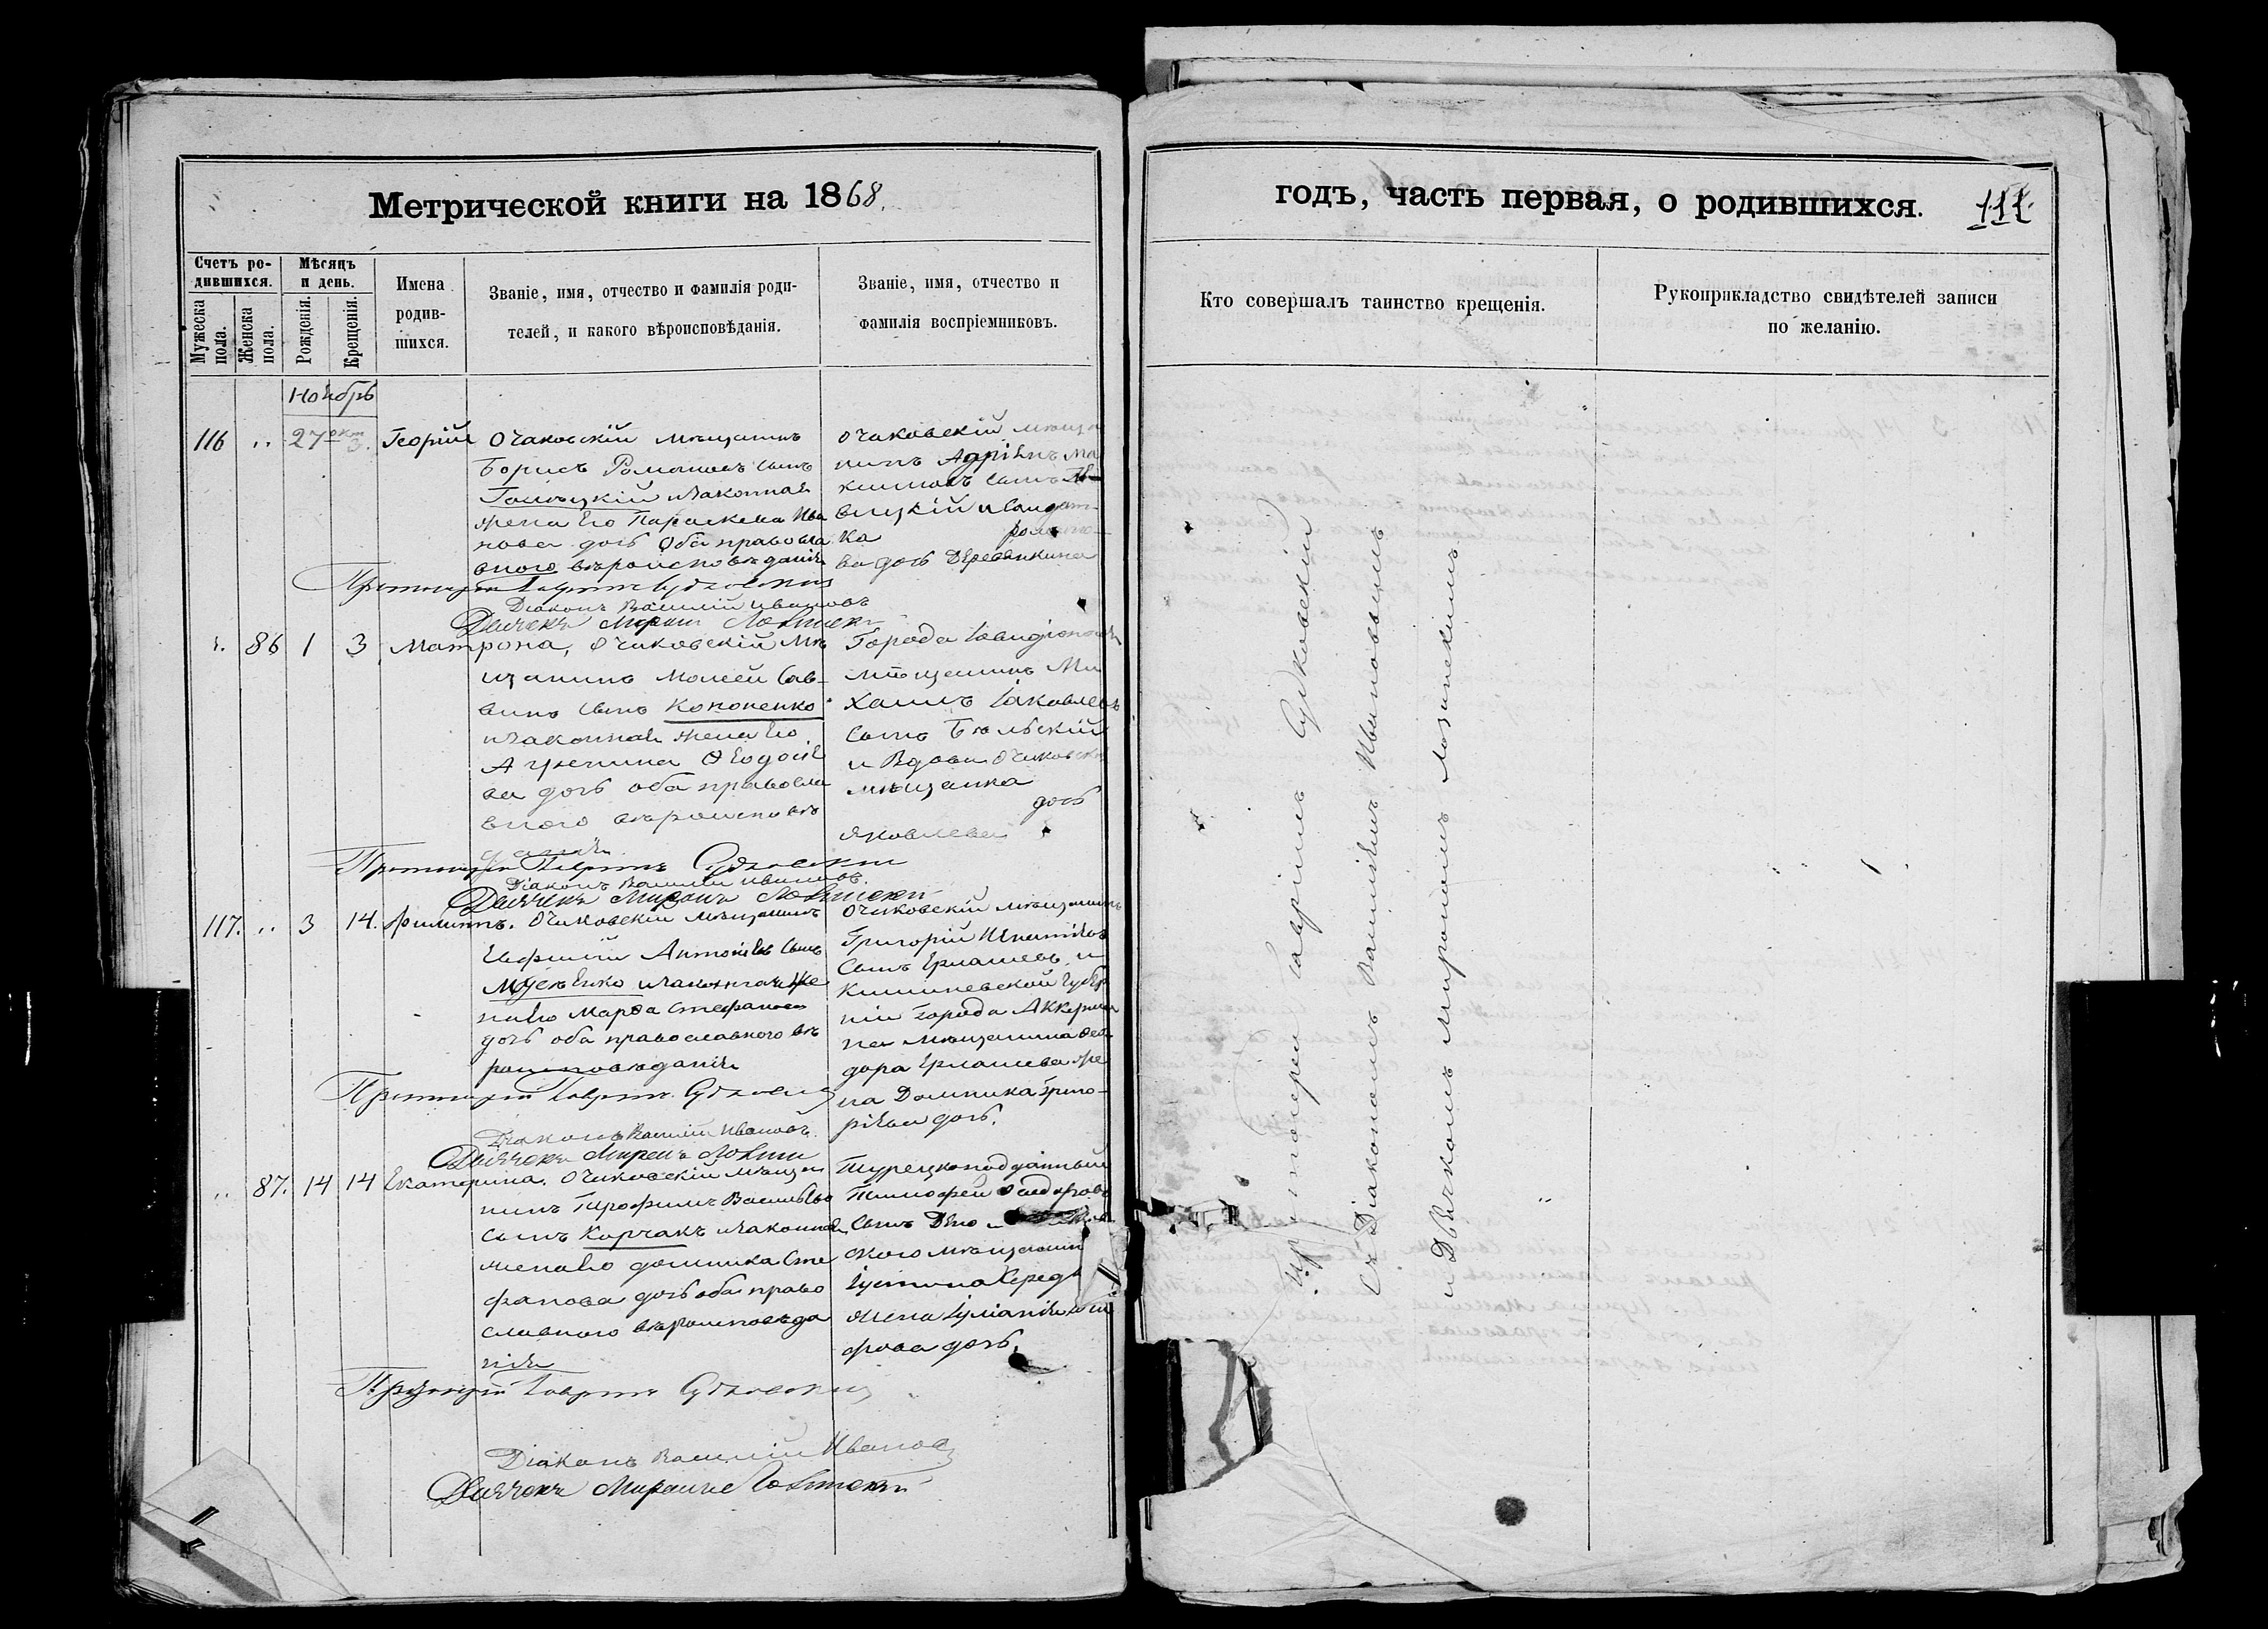 Метрической книги на 1868.
Счетъ ро-
дившихся.
Мужеска пола.
Женска пола.
Мѣсяцъ и день.
Рожденія.
Крещенія.
Имена родив-
шихся.
Званіе, имя, отчество и фамилія роди-
телей, и какого вѣроисповѣданія.
Званіе, имя, отчество и
фамилія воспріемниковъ.
Ноябрь
116 „ 27 окт 3. Георгій
Очаковскій мѣщанинъ
Борисъ сынъ
и законная
жена Его Параскева Ива
нова дочь оба правосла
вного вѣроисповѣданія
Очаковскій мѣща
нинъ Адріянъ Ма
ксимовъ сынъ
ва дочь Деревянкина
Протоіерей Гавріилъ Судковскій
Діаконъ Василій Ивановъ
Дьячекъ Миронъ
„ 86 1 3 Матрона,
Очаковскій мѣ
щанинъ Моисей Сав-
винъ сынъ Кононенко
и законная жена Его
Агрепина Ѳеодосіе
ва дочь оба правосла
вного вѣроисповѣ
данія.
Города
мѣщанинъ Ми
хаилъ Іаковлевъ
сынъ Бѣльскій
и Вдова Очаковска
мѣщанка
дочь
Яковлева
Протоіерей Гавріилъ Судковскій
Діаконъ Василій Ивановъ.
Дьячекъ Миронъ
117. „ 3 14. Филиппъ.
Очаковскій мѣщанинъ
Евфимій Антоніевъ сынъ
и законная же
на Его Марѳа Стефанова
дочь оба православного вѣ
роисповѣданія
Очаковскій мѣщанинъ
Григорій Игнатіевъ
сынъ Ермашевъ, и
Кишиневской Губер
ніи Города Аккерма
на мѣщанина Ѳео
дора Ермашева же
на Домника Григо-
ріева дочь.
Протоіерей Гавріилъ Судковскій
Діаконъ Василій Ивановъ.
Дьячекъ Миронъ
„ 87. 14 14 Екатерина.
Очаковскій мѣща
нинъ Трофимъ Васильевъ
сынъ Корчакъ и законная
жена Его Домника Сте
фанова дочь оба право
славного вѣроисповѣда
нія
Турецкоподданный
Тимофей
сынъ
ского мѣщанин
жена
дочь.
Протоіерей Гавріилъ Судковскій
Діаконъ Василій Ивановъ
Дьячекъ Миронъ
годъ, часть первая, о родившихся.
111.
Кто совершалъ таинство крещенія.
Рукоприкладство свидѣтелей записи
по желанію.
Протоіерей Гавріилъ Судковскій
Съ Діакономъ Василіемъ Ивановымъ
и Дьячкомъ Мирономъ